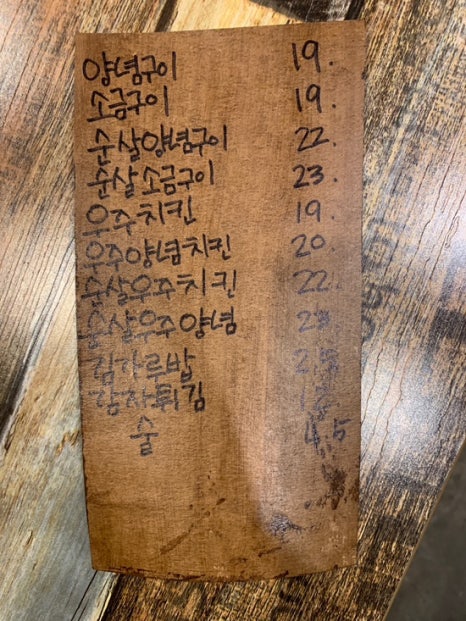 양념구이 19.
소금구이 19.
순살양념구이 22.
순살소금구이 23.
우주치킨 19.
우주양념치킨 20.
순살우주치킨 22.
순살우주양념 23.
김가루밥 2.5
감자튀김
술 4.5